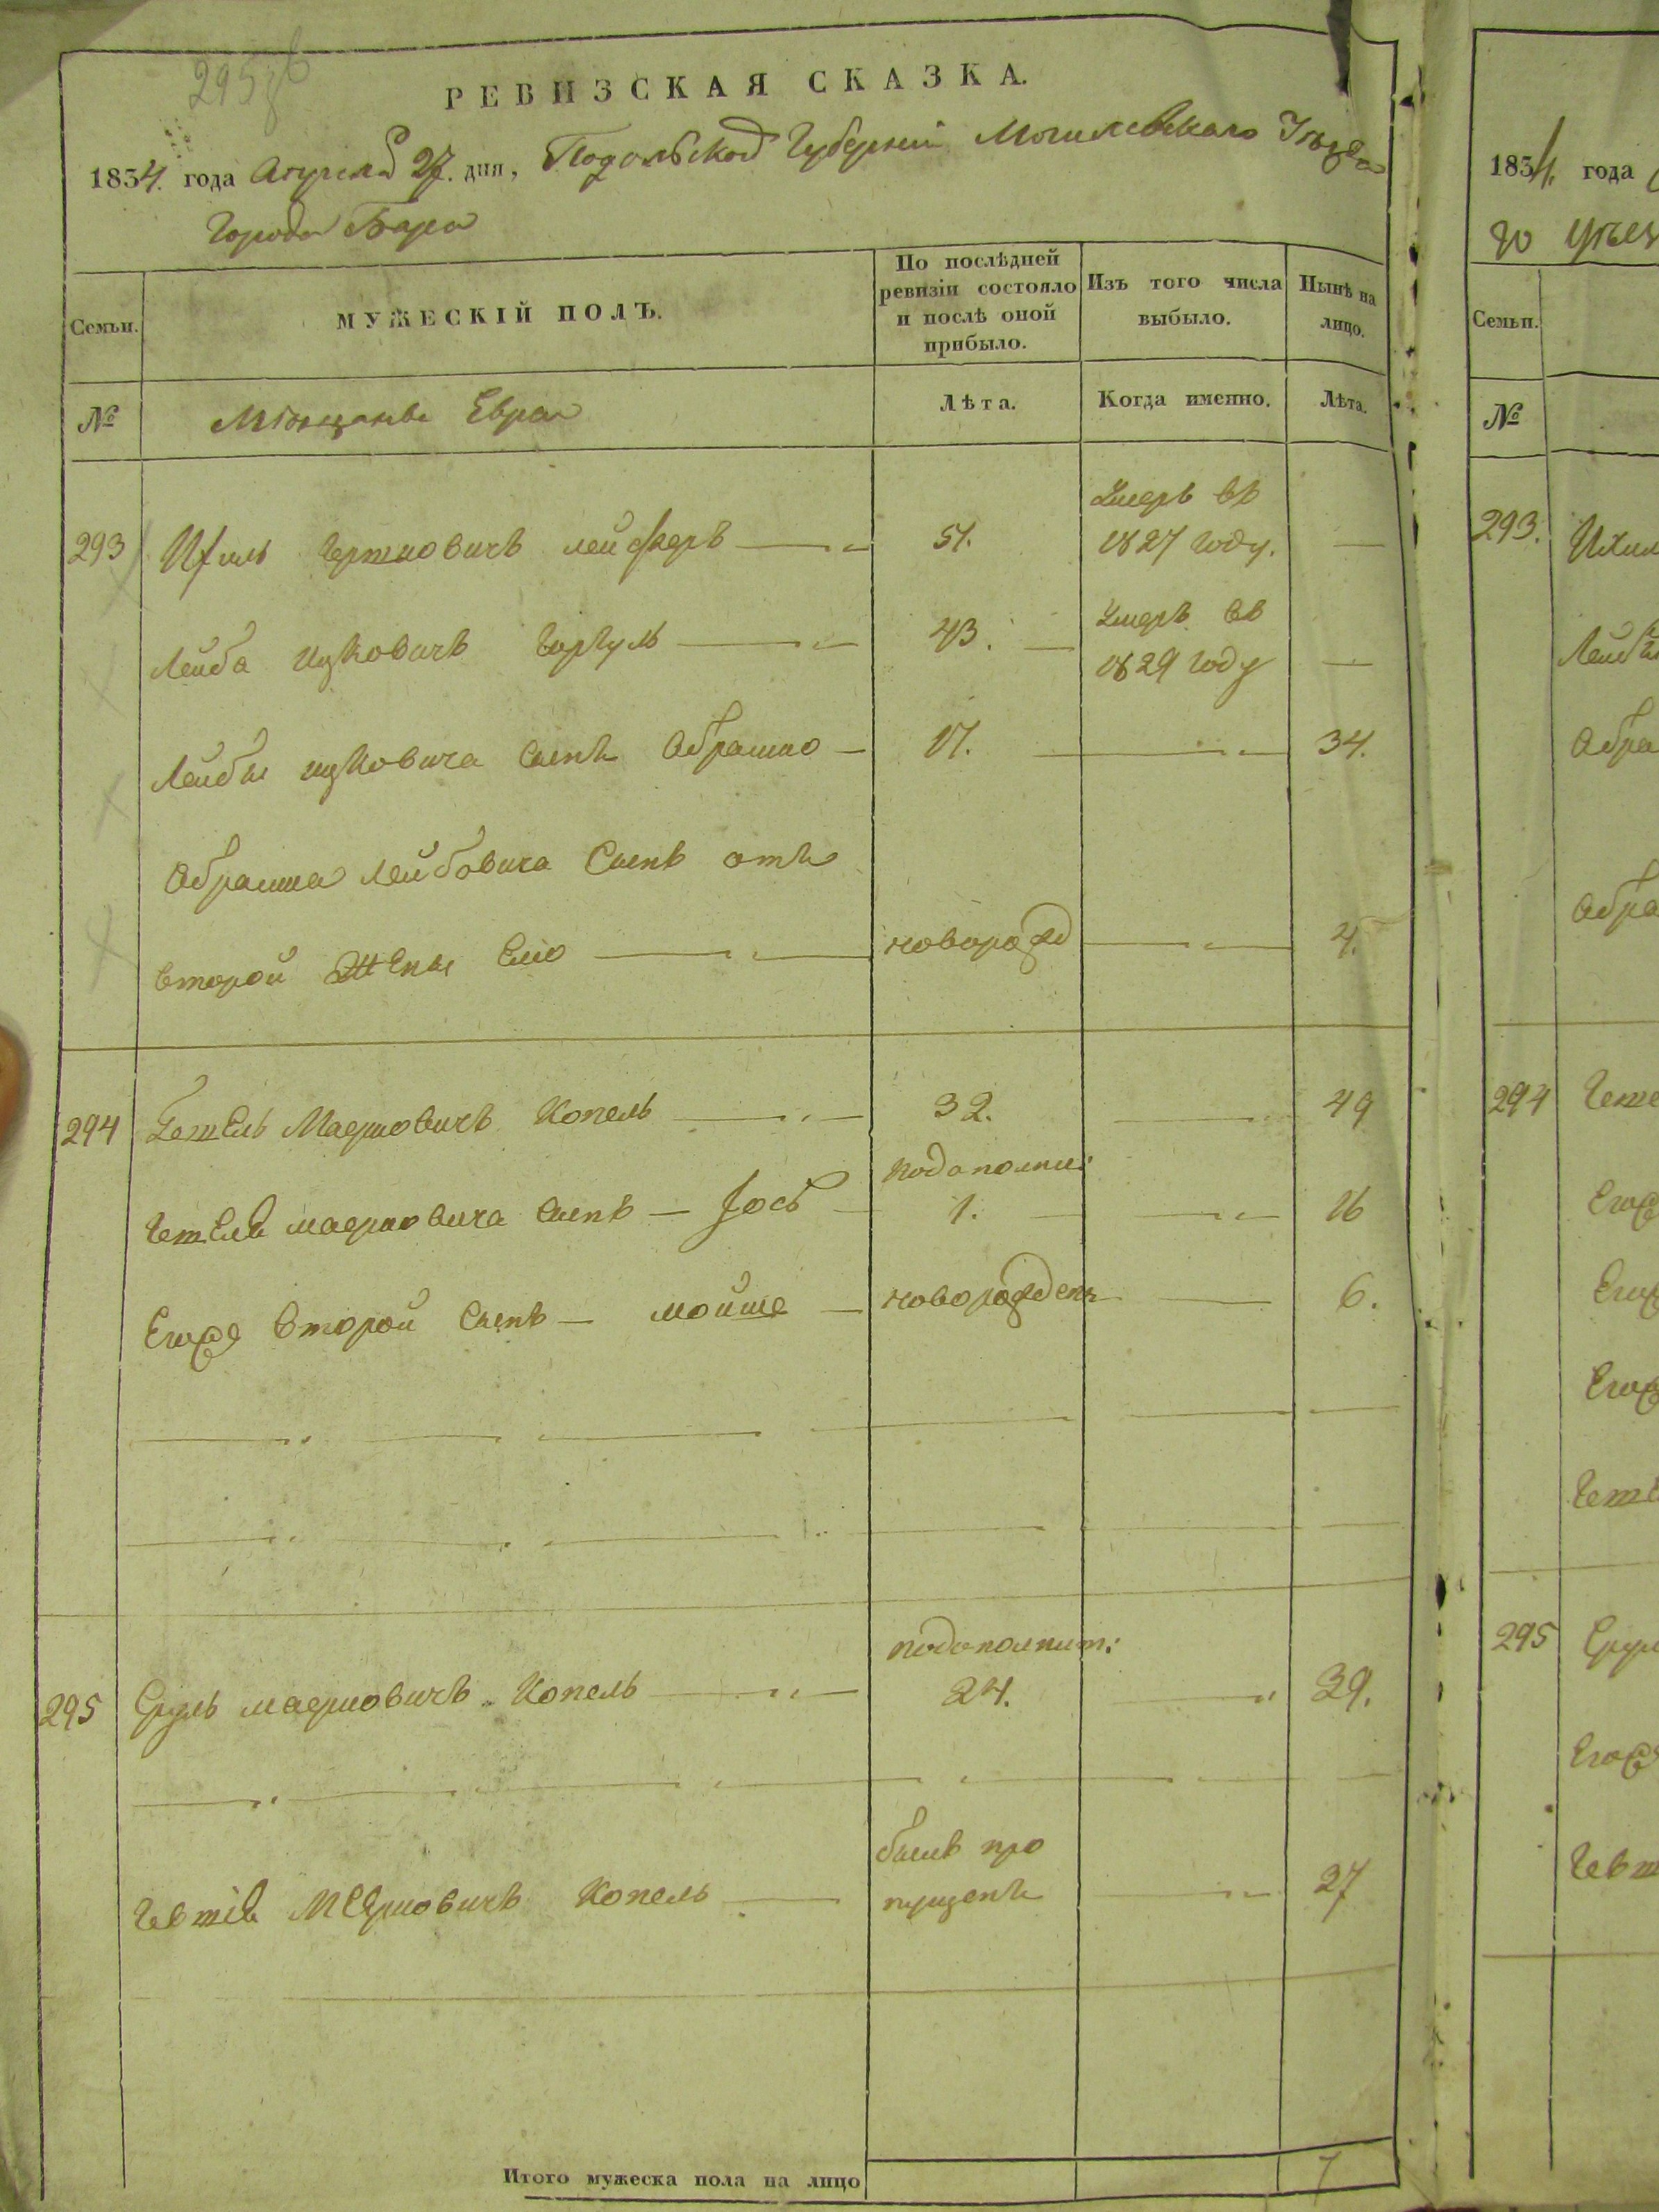 295
РЕВИЗСКАЯ СКАЗКА.
1834. года Апреля 27. дня, Подольской Губернии Могилевского Уезда
Города Бара
Семьи.
МУЖЕСКІЙ ПОЛЪ.
По послѣдней ревизіи состояло и послѣ оной прибыло.
Изъ того числа выбыло.
Нынѣ на лицо.
№
Мѣщане Евреи
Лѣта.
Когда именно.
Лѣта.
293 Ихиль Гершковичъ лейферъ 51. Умеръ въ 1827 году. —
Лейба ицковичъ 43. Умеръ въ 1829 году —
Лейбы ицковича сынъ Абрамко 17. 34.
Абрамка лейбовича Сынъ отъ
второй Жены Елю новорожд 4.
294 Гетель Маерковичъ Копель 32. 49
подополнит:
Гетеля маерковича сынъ — Іось 1. 16
Егоже второй сынъ — мойше новорожденъ 6.
подополнит:
295 Сруль маерковичъ Копель 24. 39.
былъ про
Копель пущенъ 27
Итого мужеска пола на лицо 7
1834. года
го уезд
Семьи.
№
293. Ихил
Лейб
Абра
Абра
294
Егож
Егож
Егож
295 Срул
Егож